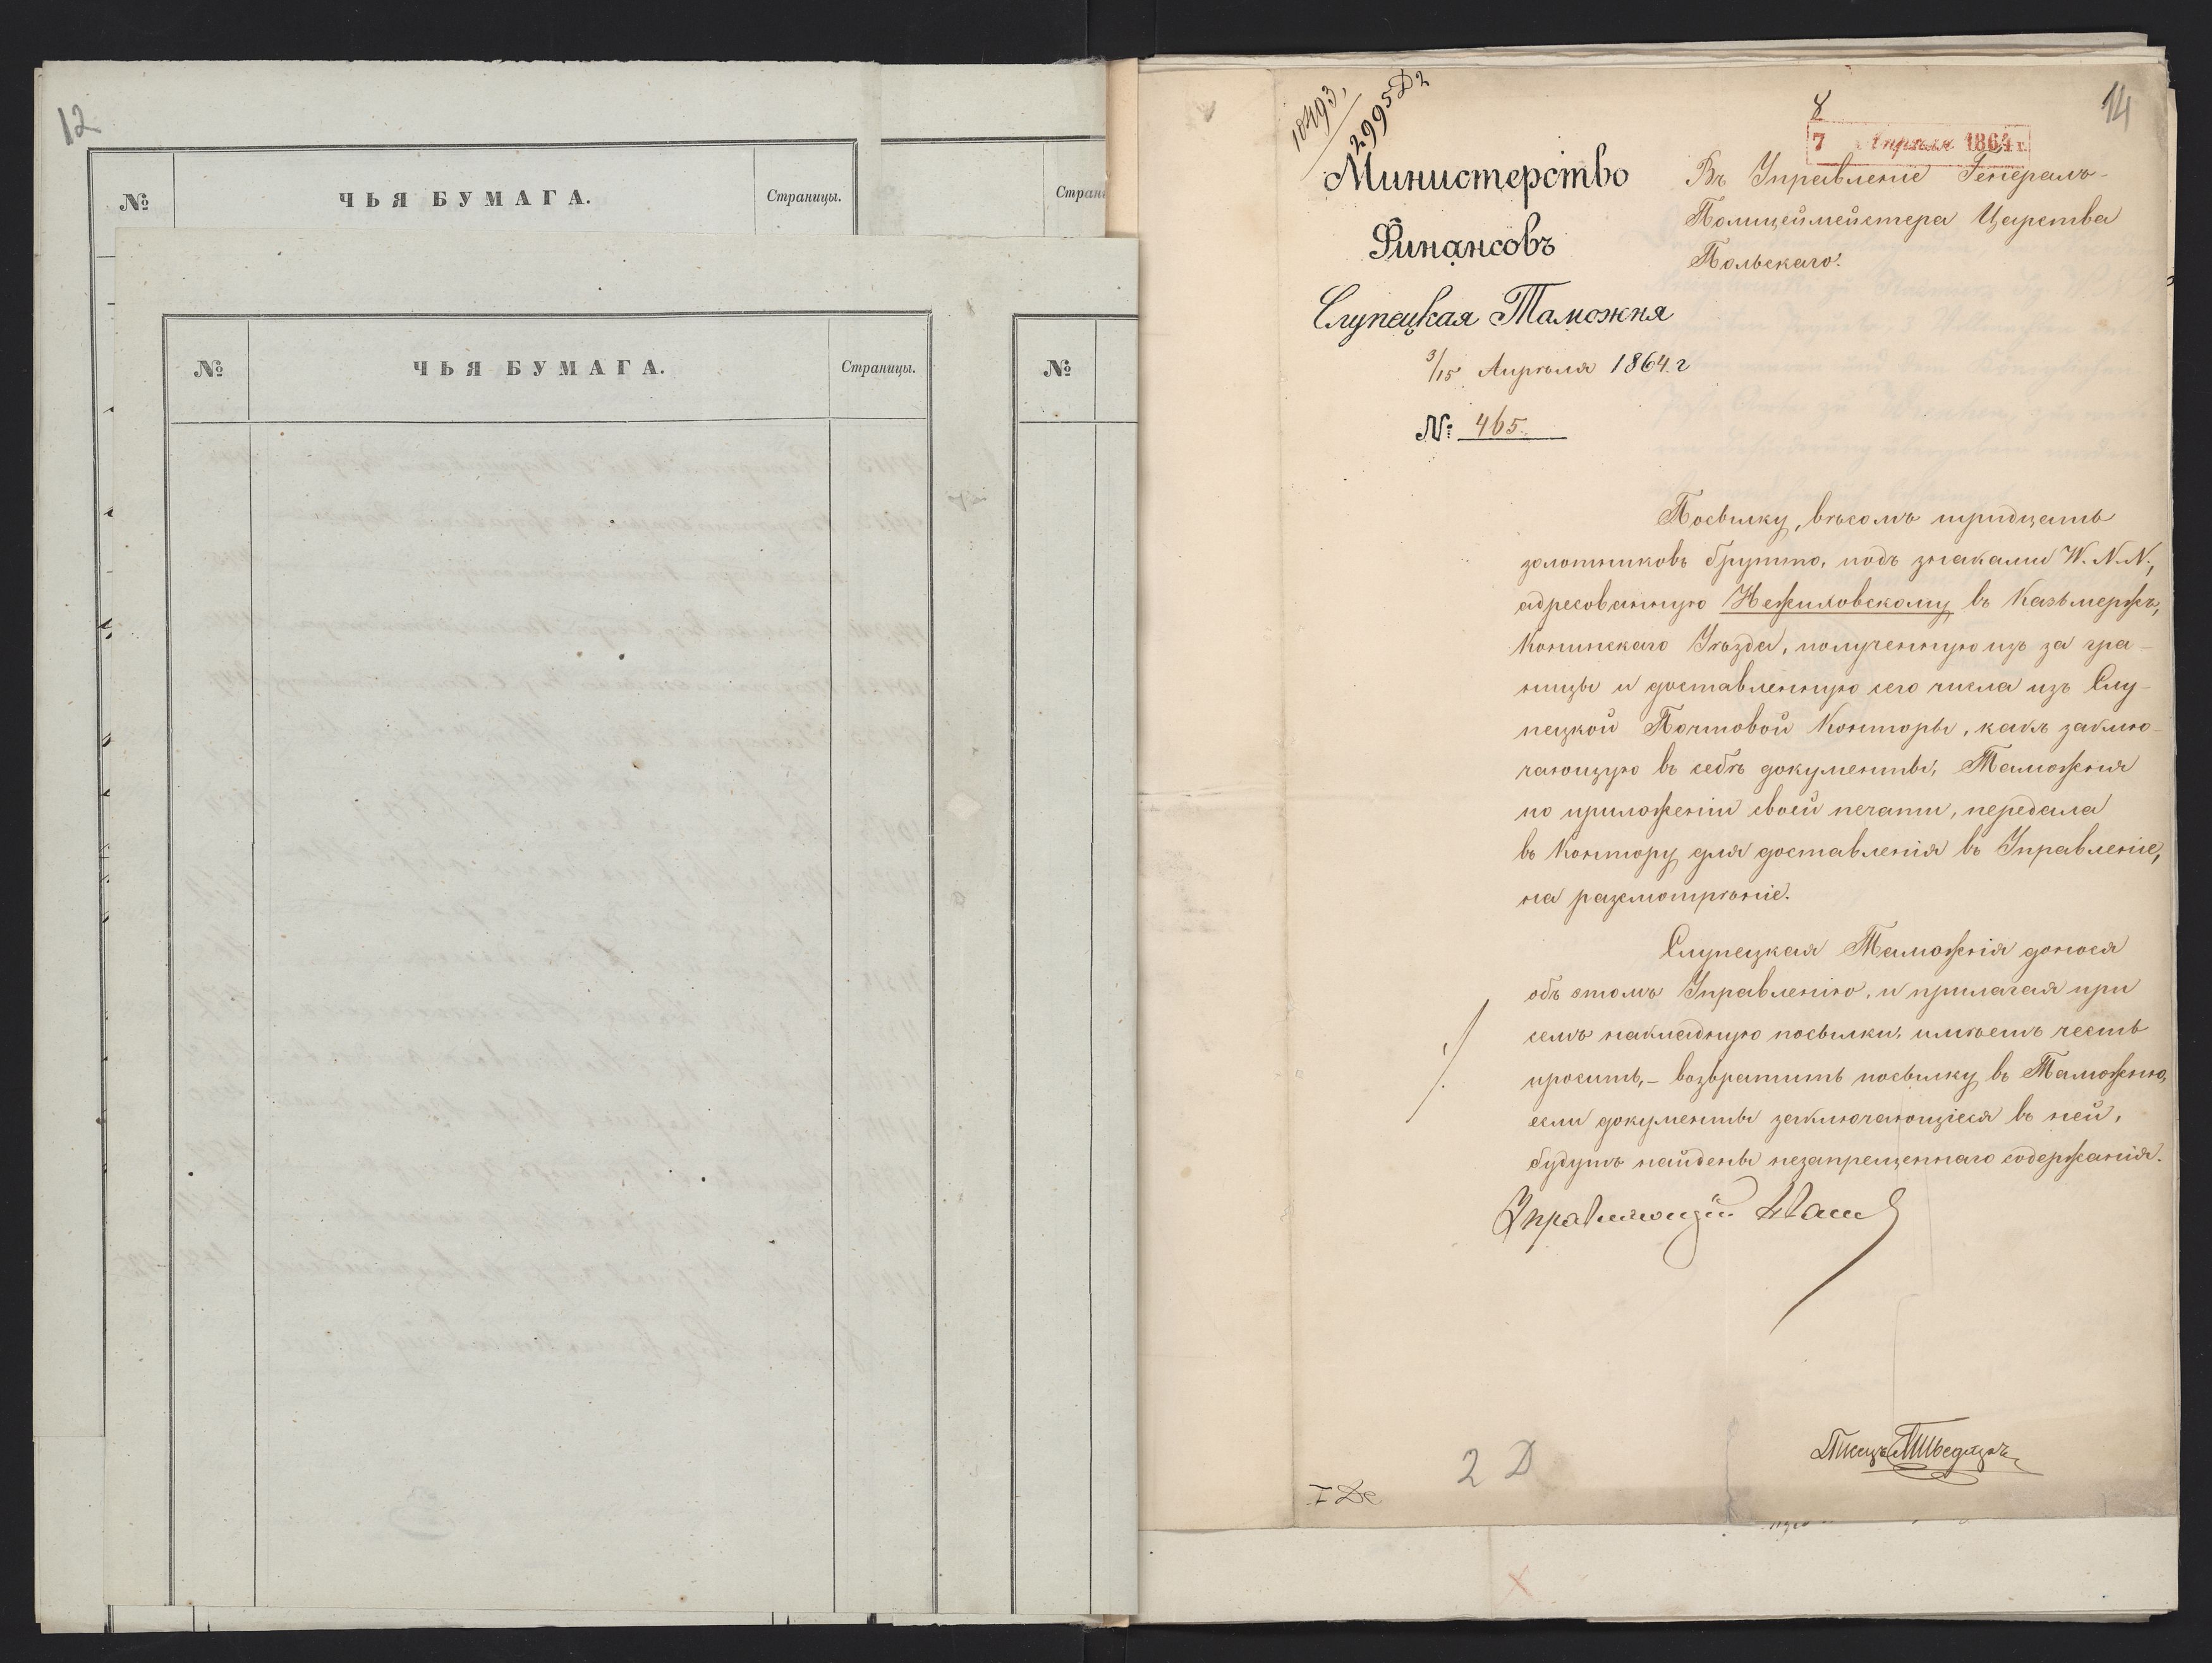 12
№ ЧЬЯ БУМАГА. Страницы.
№ ЧЬЯ БУМАГА. Страницы.
№
14
10493,
2995 Д2
8
7 Апрѣля 1864 г.
Министерство
Финансовъ
Слупецкая Таможня
3/15 Апрѣля 1864.г
№: 465.
Въ Управленіе Генералъ-
Полицеймейстера Царства
Польскаго.
Посылку, вѣсомъ тридцать
золотниковъ брутто, подъ знаками W. N. N.,
адресованную Нежиховскому въ Казьмержъ,
Конинскаго Уѣзда, полученную изъ за гра-
ницы и доставленную сего числа изъ Слу-
пецкой Почтовой Конторы, какъ заклю-
чающую въ себѣ документы, Таможня
по приложеніи своей печати, передала
въ Контору для доставленія въ Управленіе,
на разсмотрѣніе.
Слупецкая Таможня донося
объ этомъ Управленію, и прилагая при
семъ накладную посылки, имѣетъ честь
просить,- возвратить посылку въ Таможню,
если документы заключающіеся въ ней,
будутъ найдены незапрещеннаго содержанія.
Управляющій
2 Д